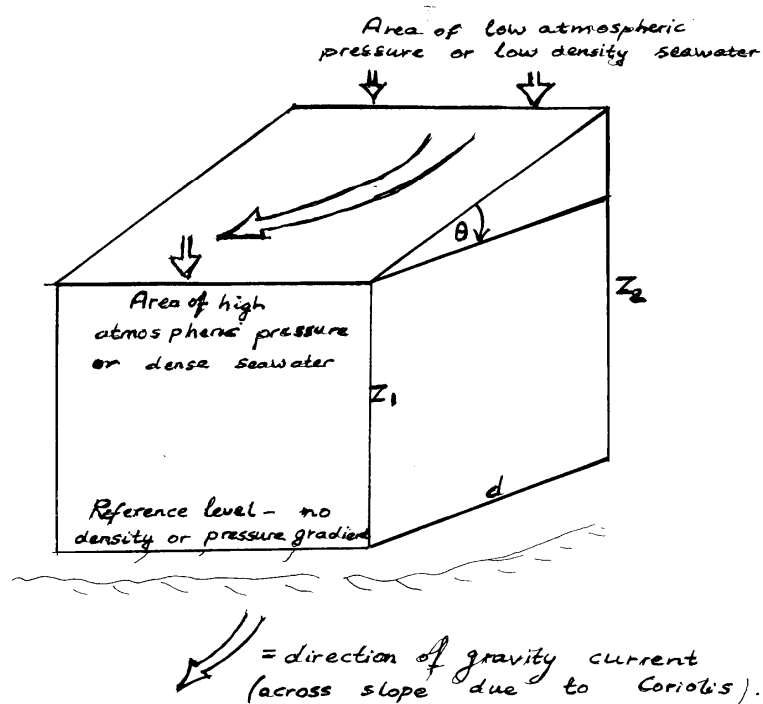 Area of low atmospheric
pressure or low density seawater
θ
Z2
Area of high
atmospheric pressure
or dense seawater
Z1
d
Reference level - no
density or pressure gradient
= direction of gravity current
(across slope due to Coriolis).